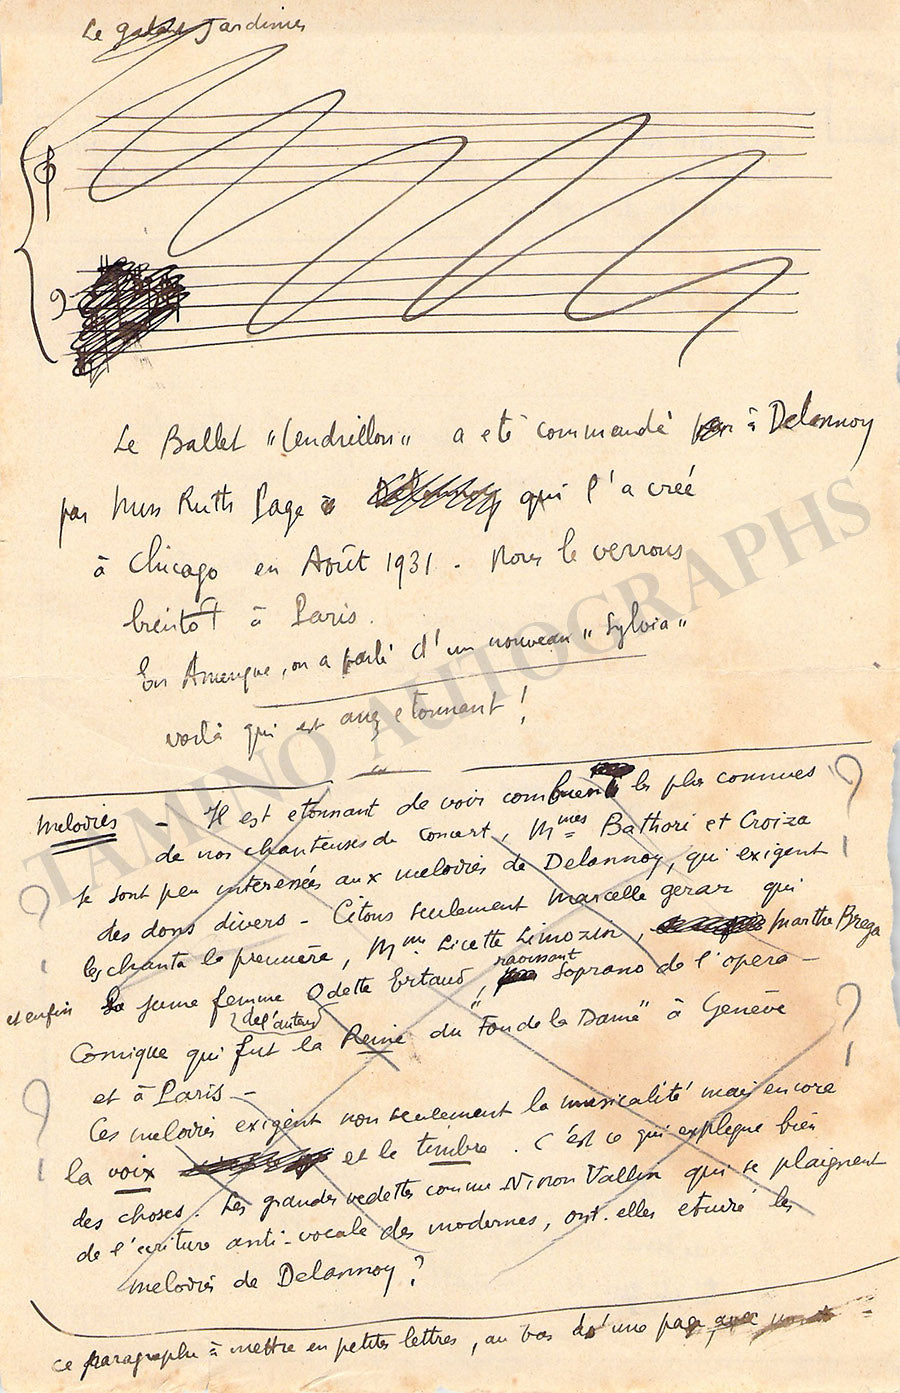 Le galant Jardinier
Le Ballet "Cendrillon" a eté commandé à Delannoy
par Miss Ruth Page qui l'a créé
à Chicago en Août 1931 - Nous le verrons
bientôt à Paris.
En Amerique, on a parlé d'un nouveau "Sylvia"
voilà qui est assez etonnant !
Melodies - Il est etonnant de voir combien les plus connues
de nos chanteuses de concert, Mmes Bathori et Croiza
se sont peu interessées aux melodies de Delannoy, qui exigent
des dons divers - Citons seulement Marcelle gerar qui
les chanta la première, Mme Licette Limozin, Marthe Brega
et enfin La jeune femme Odette Ertaud, ravissant Soprano de l'opera -
de l'auteur
Comique qui fut la Reine du "Fou de la Dame" à Genève
et à Paris -
Ces melodies exigent non seulement la musicalité mais encore
la voix et le timbre. C'est ce qui explique bien
des choses. Les grandes vedettes comme Ninon Vallin qui se plaignent
de l'ecriture anti-vocale des modernes, ont-elles etudié les
melodies de Delannoy ?
ce paragraphe à mettre en petites lettres, au bas d'une page
TAMINO AUTOGRAPHS